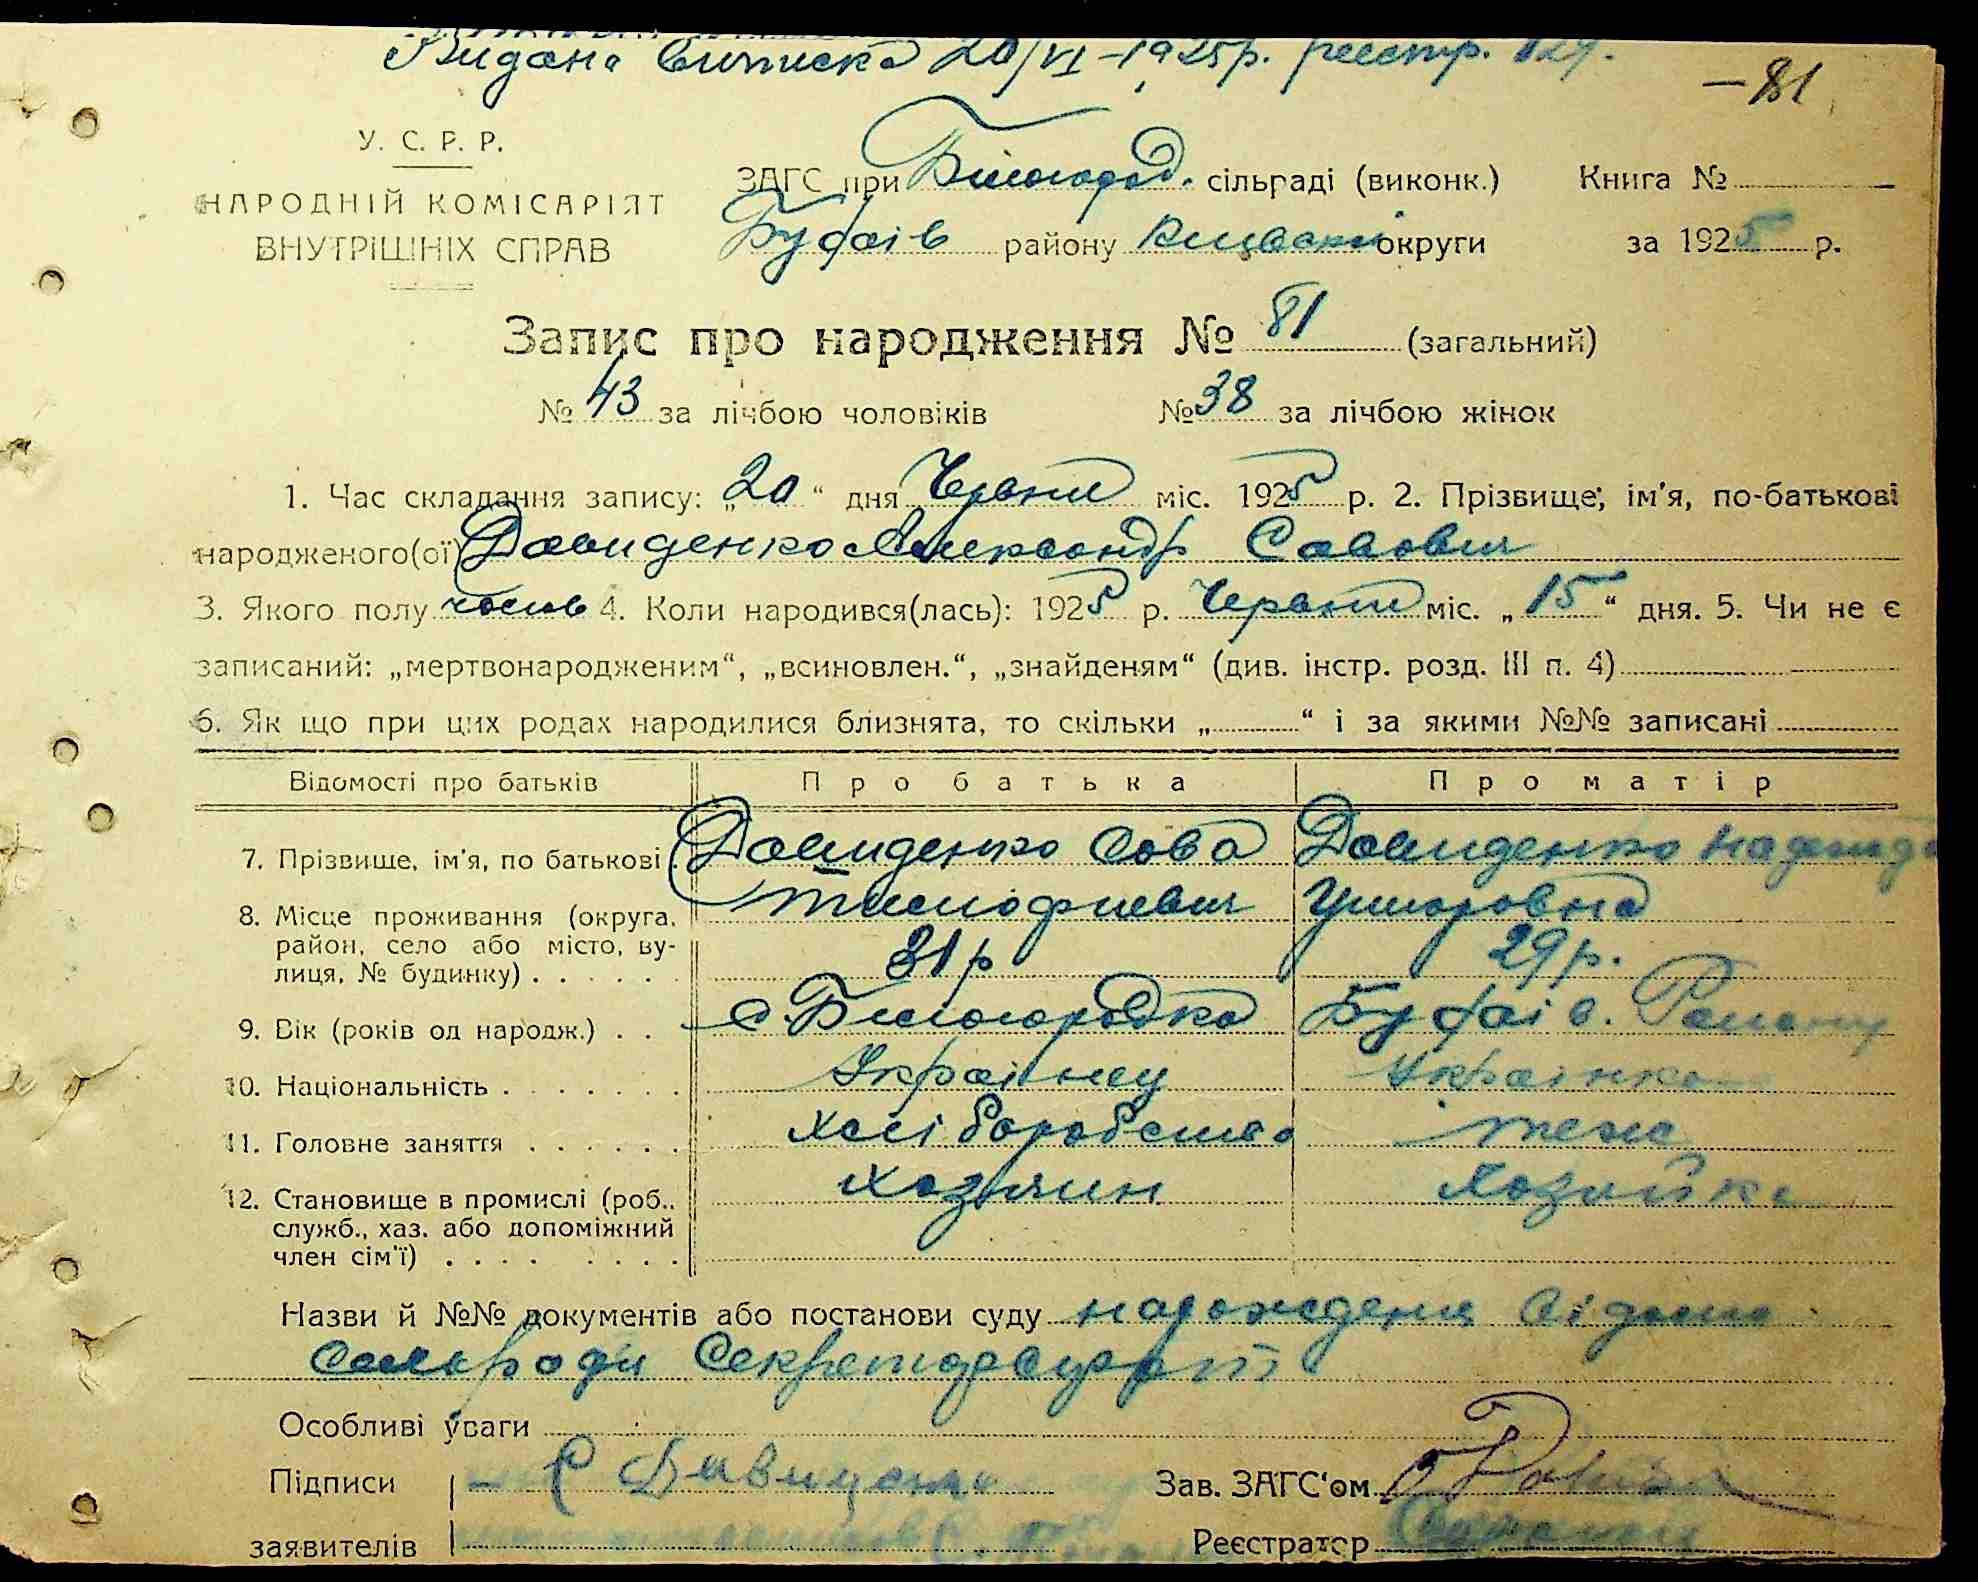 Видана виписка 20/VI – 1925 р. реєстр.
– 81
У. С. Р. Р.
НАРОДНІЙ КОМІСАРІЯТ
ВНУТРІШНІХ СПРАВ
ЗАГС при Білогород. сільраді (виконк.) Книга №
Будаїв району Київської округи за 1925 р.
Запис про народження № 81 (загальний)
№ 43 за лічбою чоловіків № 38 за лічбою жінок
1. Час складання запису: „20“ дня Червня міс. 1925 р. 2. Прізвище, ім'я, по-батькові
народженого(ої) Давиденко Александр Савович
3. Якого полу чолов 4. Коли народився(лась): 1925 р. Червня міс. „15“ дня. 5. Чи не є
записаний: „мертвонародженим“, „всиновлен.“, „знайденям“ (див. інстр. розд. III п. 4)
6. Як що при цих родах народилися близнята, то скільки „ “ і за якими №№ записані
Відомості про батьків Про батька Про матір
7. Прізвище, ім'я, по батькові . Давиденко Сава Давиденко Надежда
8. Місце проживання (округа, Тимофиевич
район, село або місто, ву-
лиця, № будинку) . . . . . 31 р 29 р.
9. Вік (років од народж.) . . с. Білогородка Будаів. Району
10. Національність . . . . . . . Українец Українка
11. Головне заняття . . . . . . Хліборобство тежа
12. Становище в промислі (роб., Хозяин Хозяйка
служб., хаз. або допоміжний
член сім'ї) . . . . . . . .
Назви й №№ документів або постанови суду народження відомо
сельради
Особливі уваги
Підписи – С Давиденко Зав. ЗАГС'ом
заявителів Реєстратор